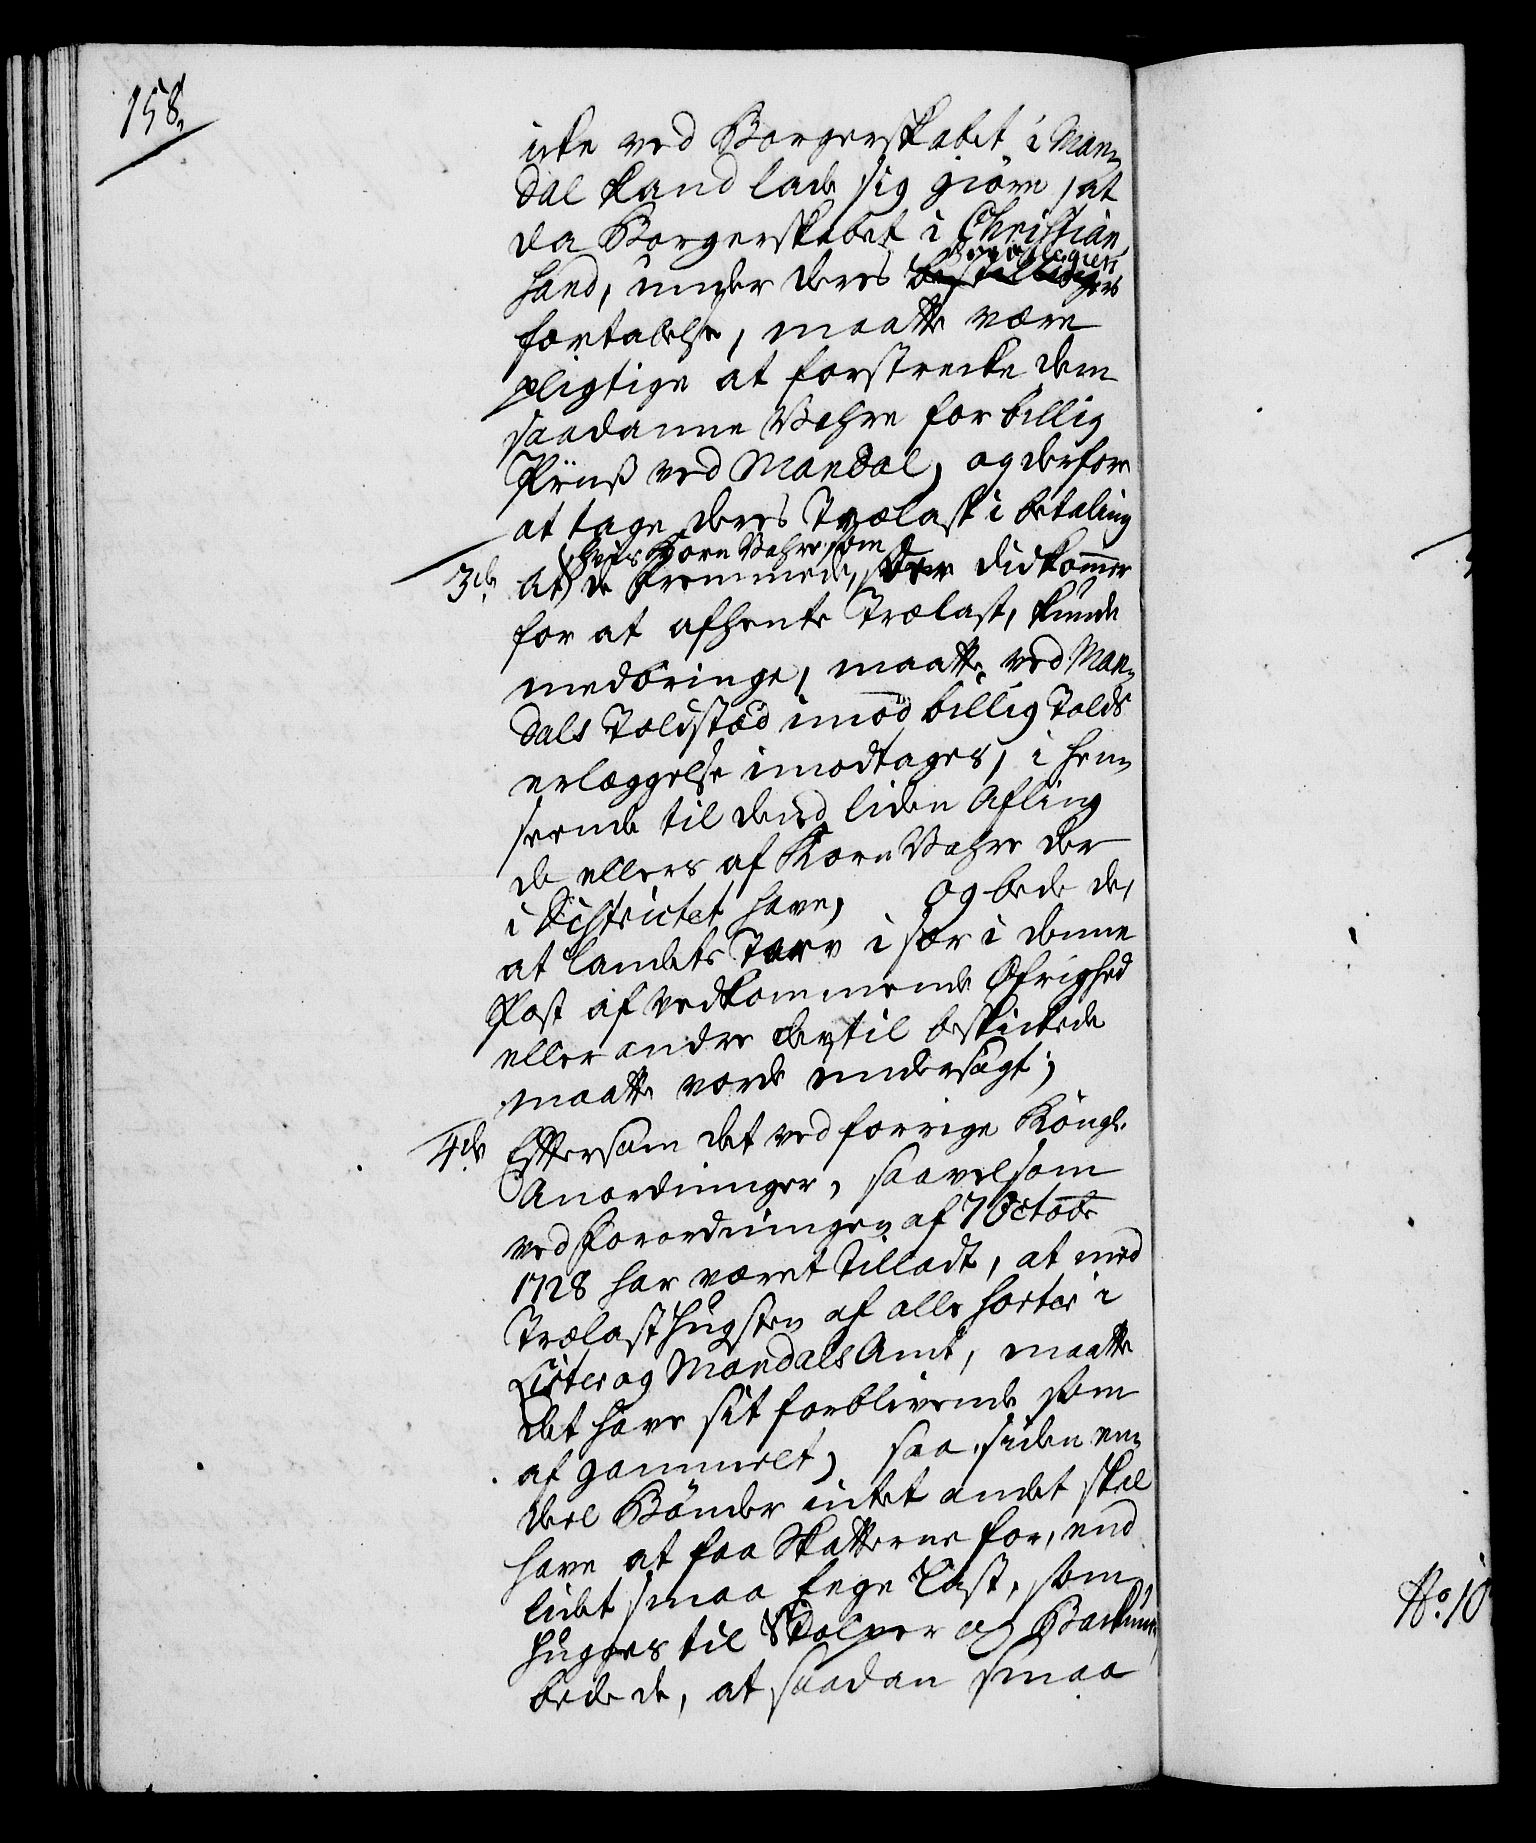 158.
icke ved Borgerskabet i Man¬
dal kand lade sig giöre, at
da Borgerskabet i Christian¬
sand, under deres Privilegiers
fortabelse, maatte være
pligtige at forstrecke dem
saadanne Vahre for billig
Priis ved Mandal, og derfore
at tage deres Trælast i betaling
3de At hvis Korn Vahre som
de fremmede, der didkommer
for at afhente Trælast, kunde
medbringe, maatte ved Man¬
dals Toldsted imod billig Tolds
erlæggelse imodtages, i hen¬
seende til dend liden Afling
de ellers af Korn Vahre der
i Districtet have, og bede de,
at landets Tarv i sær i denne
Post af vedkommende Øfrighed
eller andre dertil beskickede
maatte vorde undersøgt;
4de Eftersom det ved forrige Kongl.
Anordninger, saavelsom
ved Forordningen af 7 Octobr
1728 har været tilladt, at med
Trælast Hugsten af alle sorter i
Lister og Mandals Amt, maatte
det have sit forblivende som
af gammelt, saa siden een
deel Bönder intet andet skal
have at faa Skatterne for, end
lidet smaa Ege Last, som
hugges til Skolper og
bede de, at saadan smaa
No. 10